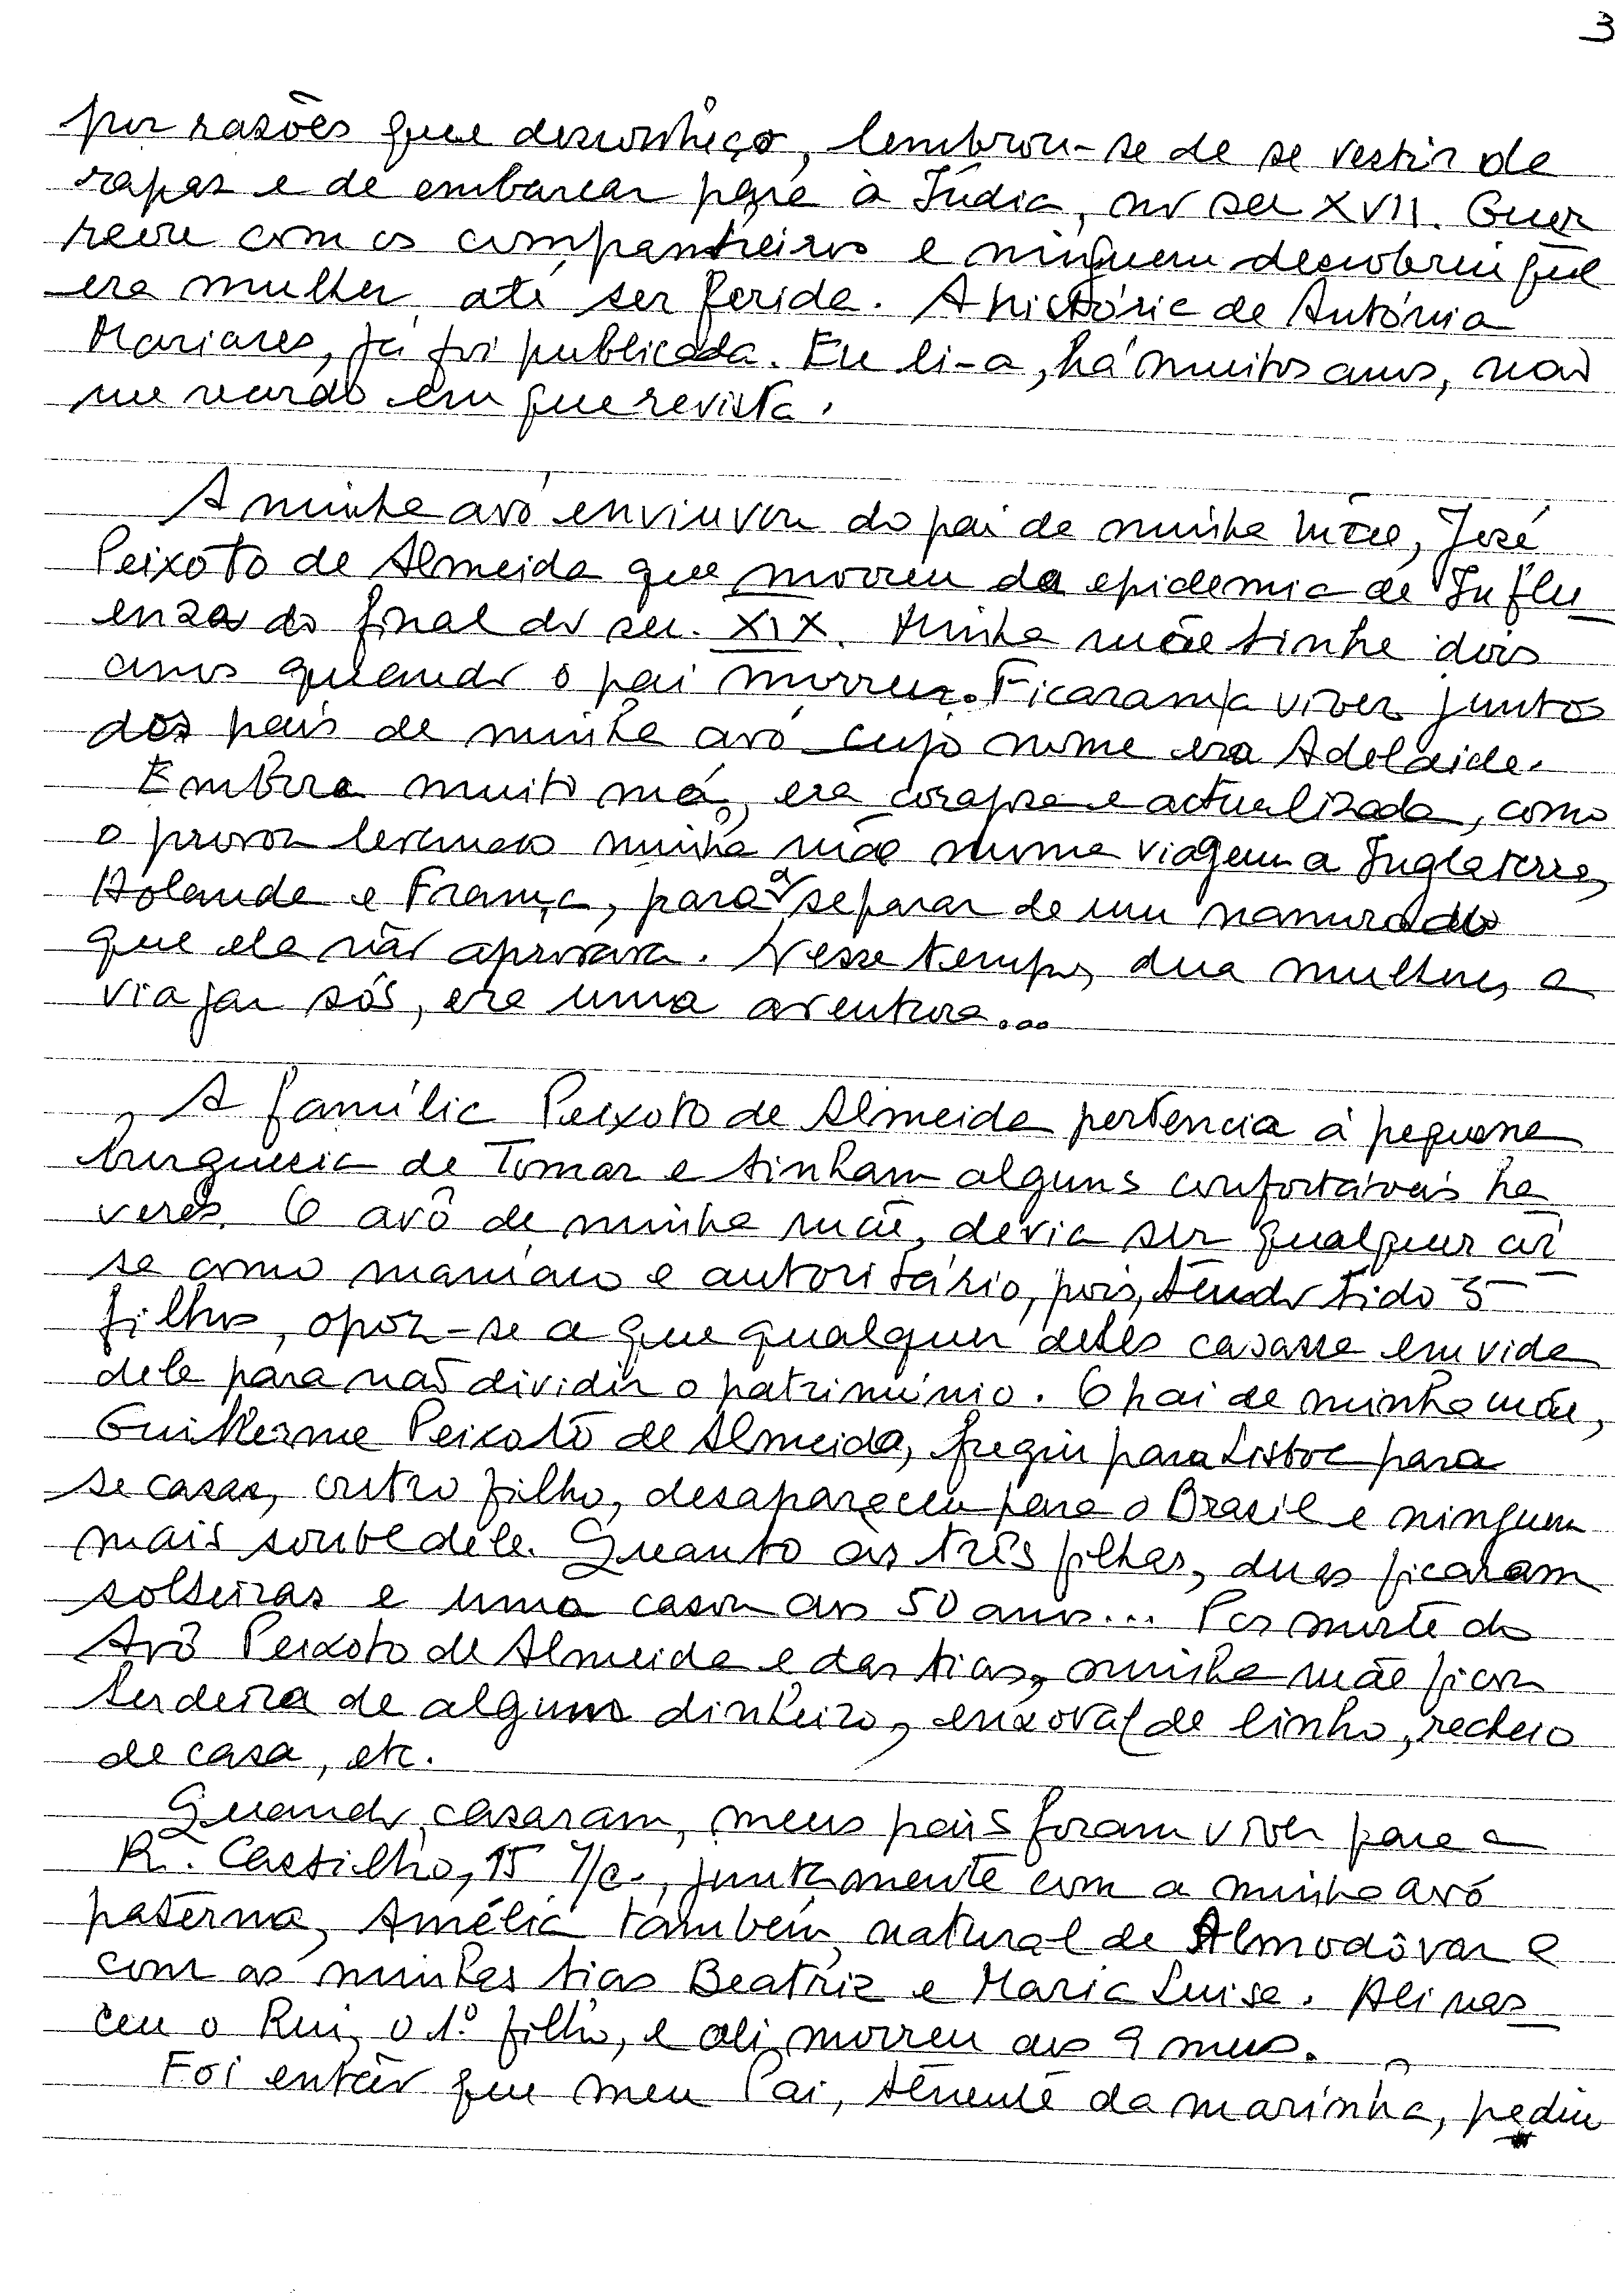 3
por razões que desconheço, lembrou-se de se vestir de
rapaz e de embarcar para a Índia, no sec XVII. Guer
reou com os companheiros e ninguem descobriu que
era mulher, até ser ferida. A história de Antónia
Mariares, já foi publicada. Eu li-a, há muitos anos, não
me recordo em que revista.
A minha avó enviuvou do pai de minha Mãe, José
Peixoto de Almeida que morreu da epidemia de Influ
enza do final do sec. XIX. Minha mãe tinha dois
anos quando o pai morreu. Ficaram a viver juntos
dos pais de minha avó cujo nome era Adelaide.
Embora muito má, era corajosa e actualizada, como
o provou levando minha mãe numa viagem a Inglaterra,
Holanda e França, para a separar de um namorado
que ela não aprovava. Nesse tempo, dua mulheres a
viajar sós, era uma aventura...
A família Peixoto de Almeida pertencia à pequena
burguesia de Tomar e tinham alguns confortáveis ha
veres. O avô de minha mãe, devia ser qualquer coi
sa como maníaco e autoritário, pois, tendo tido 5
filhos, opoz-se a que qualquer deles casasse em vida
dele para não dividir o património. O pai de minha mãe,
Guilherme Peixoto de Almeida, fugiu para Lisboa para
se casar, outro filho, desapareceu para o Brasil e ninguem
mais soube dele. Quanto às três filhas, duas ficaram
solteiras e uma casou aos 50 anos... Por morte do
Avô Peixoto de Almeida e das tias, minha mãe ficou
herdeira de algum dinheiro, enxoval de linho, recheio
de casa, etc.
Quando casaram, meus pais foram viver para a
R. Castilho, 15 r/c., juntamente com a minha avó
paterna, Amélia também natural de Almodôvar e
com as minhas tias Beatriz e Maria Luisa. Ali nas
ceu o Rui, o 1º filho, e ali morreu aos 9 meses.
Foi então que meu Pai, tenente da marinha, pediu